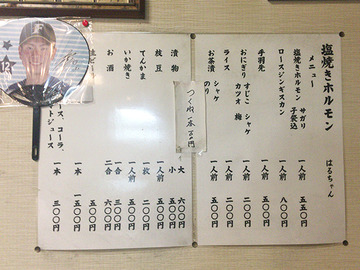 塩焼きホルモン はるちゃん
メニュー
塩焼きホルモン サガリ 子袋込 一人前 五〇〇円
ロースジンギスカン 一人前 八〇〇円
手羽先 一人前 五〇〇円
おにぎり すじこ シャケ カツオ 梅 一人前 二〇〇円
ライス 一人前 二〇〇円
お茶漬 シャケ のり 一人前 五〇〇円
つくね 一本
漬物 大 六〇〇円
小
枝豆 一人前 五〇〇円
てんかま 一枚 二〇〇円
いか焼き 一人前 五〇〇円
お酒 一合 三〇〇円
二合 六〇〇円
一本 五〇〇円
ース、コーラ、 一本 三〇〇円
トジュース
F
12